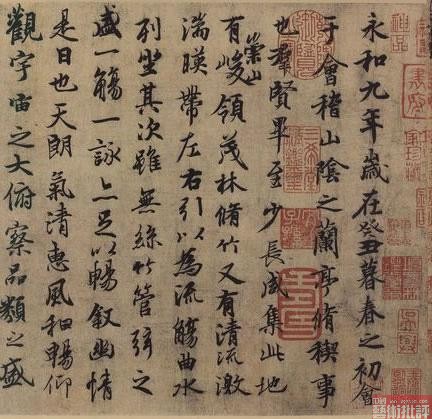 神品
永和九年歲在癸丑暮春之初會
于會稽山陰之蘭亭脩稧事
也羣賢畢至少長咸集此地
有崇山峻領茂林脩竹又有清流激
湍暎帶左右引以為流觴曲水
列坐其次雖無絲竹管弦之
盛一觴一詠亦足以暢叙幽情
是日也天朗氣清惠風和暢仰
觀宇宙之大俯察品類之盛
藝術批評